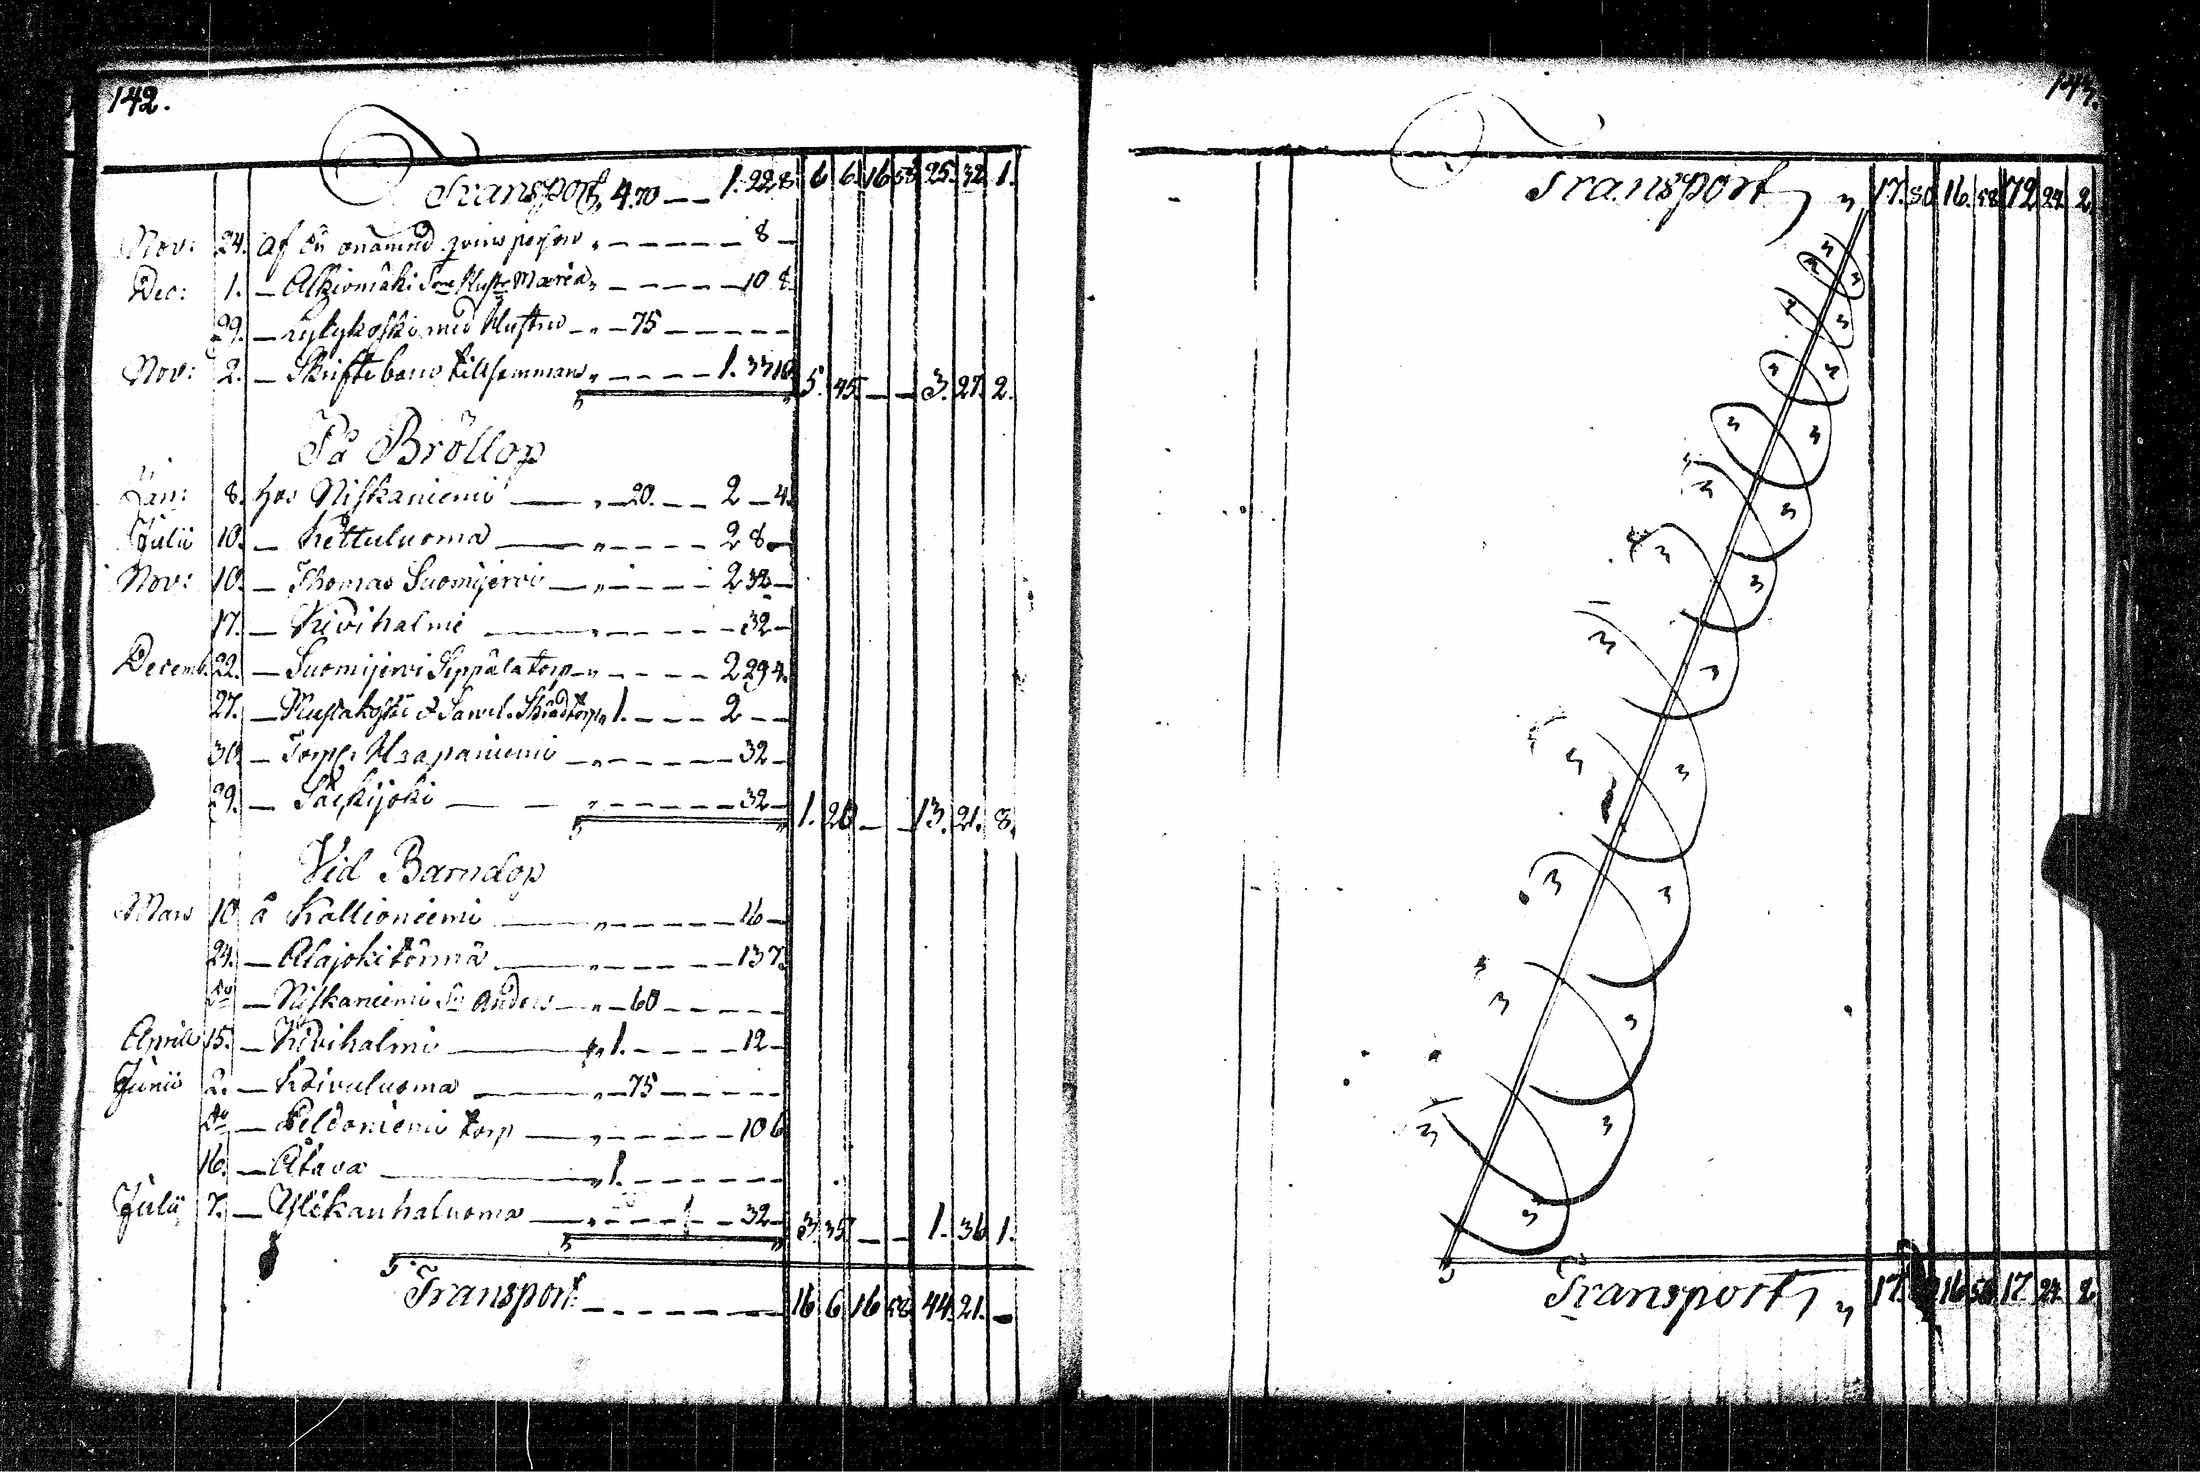 142.
Transport, 4.70 — — 1. 22 8. 6 6. 16 58 25. 32 1.
Nov: 24. af en onämnd person „ — — — — — 8 —
Dec: 1. — Alkiomäki Hustr Maria „ — — — — — 10 8.
29. — Kylykoski med Hustru — „ — 75 — — — — — —
Nov: 2. — Skriftebarn tillsammans „ — — — — 1. 37 10. 5. 45. — — 3. 27. 2.
På Bröllop
Jan: 8. hos Niskaniemi — „ — 20. — — 2 — 4.
Julii 10. — Kettuluoma — „ — — — — 2 8. —
Nov: 10. — Thomas Suomijervi — „ — — — — 2 32 —
17. — Kivihalmi — „ — — — — — 32 —
Decemb. 22. — Suomijervi Seppälä torp — „ — — — — 2 29 4.
27. — Mustakoski & Samel. torp „ 1. — — — 2 — —
30. — Torp. Haapaniemi — „ — — — — — 32 —
29. — Säkijoki — — „ — — — — — 32 — 1. 20 — — 13. 21. 8.
Vid Barndop
Mars 10 å Kallioniemi — „ — — — — — 16 —
24. — Alajokitörmä — „ — — — — — 13 7.
Do — Niskaniemi Sn Anders — „ — 60 — — — — —
Aprill 15. — Kivihalmi — „ 1. — — — — 12 —
Junii 2. — Koivuluoma — „ — 75 — — — — —
Do — Peldoniemi torp — „ — — — — — 10 6
16. — Atava — „ 1. — — — — — —
Julii 7. — Ylikauhaluoma — „ — — — — — 32 — 3. 35 — — 1. 36 1.
Transport: — — — — — — 16 6 16 58 44. 21. —
143.
Transport, 17. 30 16. 58 72 24. 2
Transport, 17. 16 58 17. 24. 2